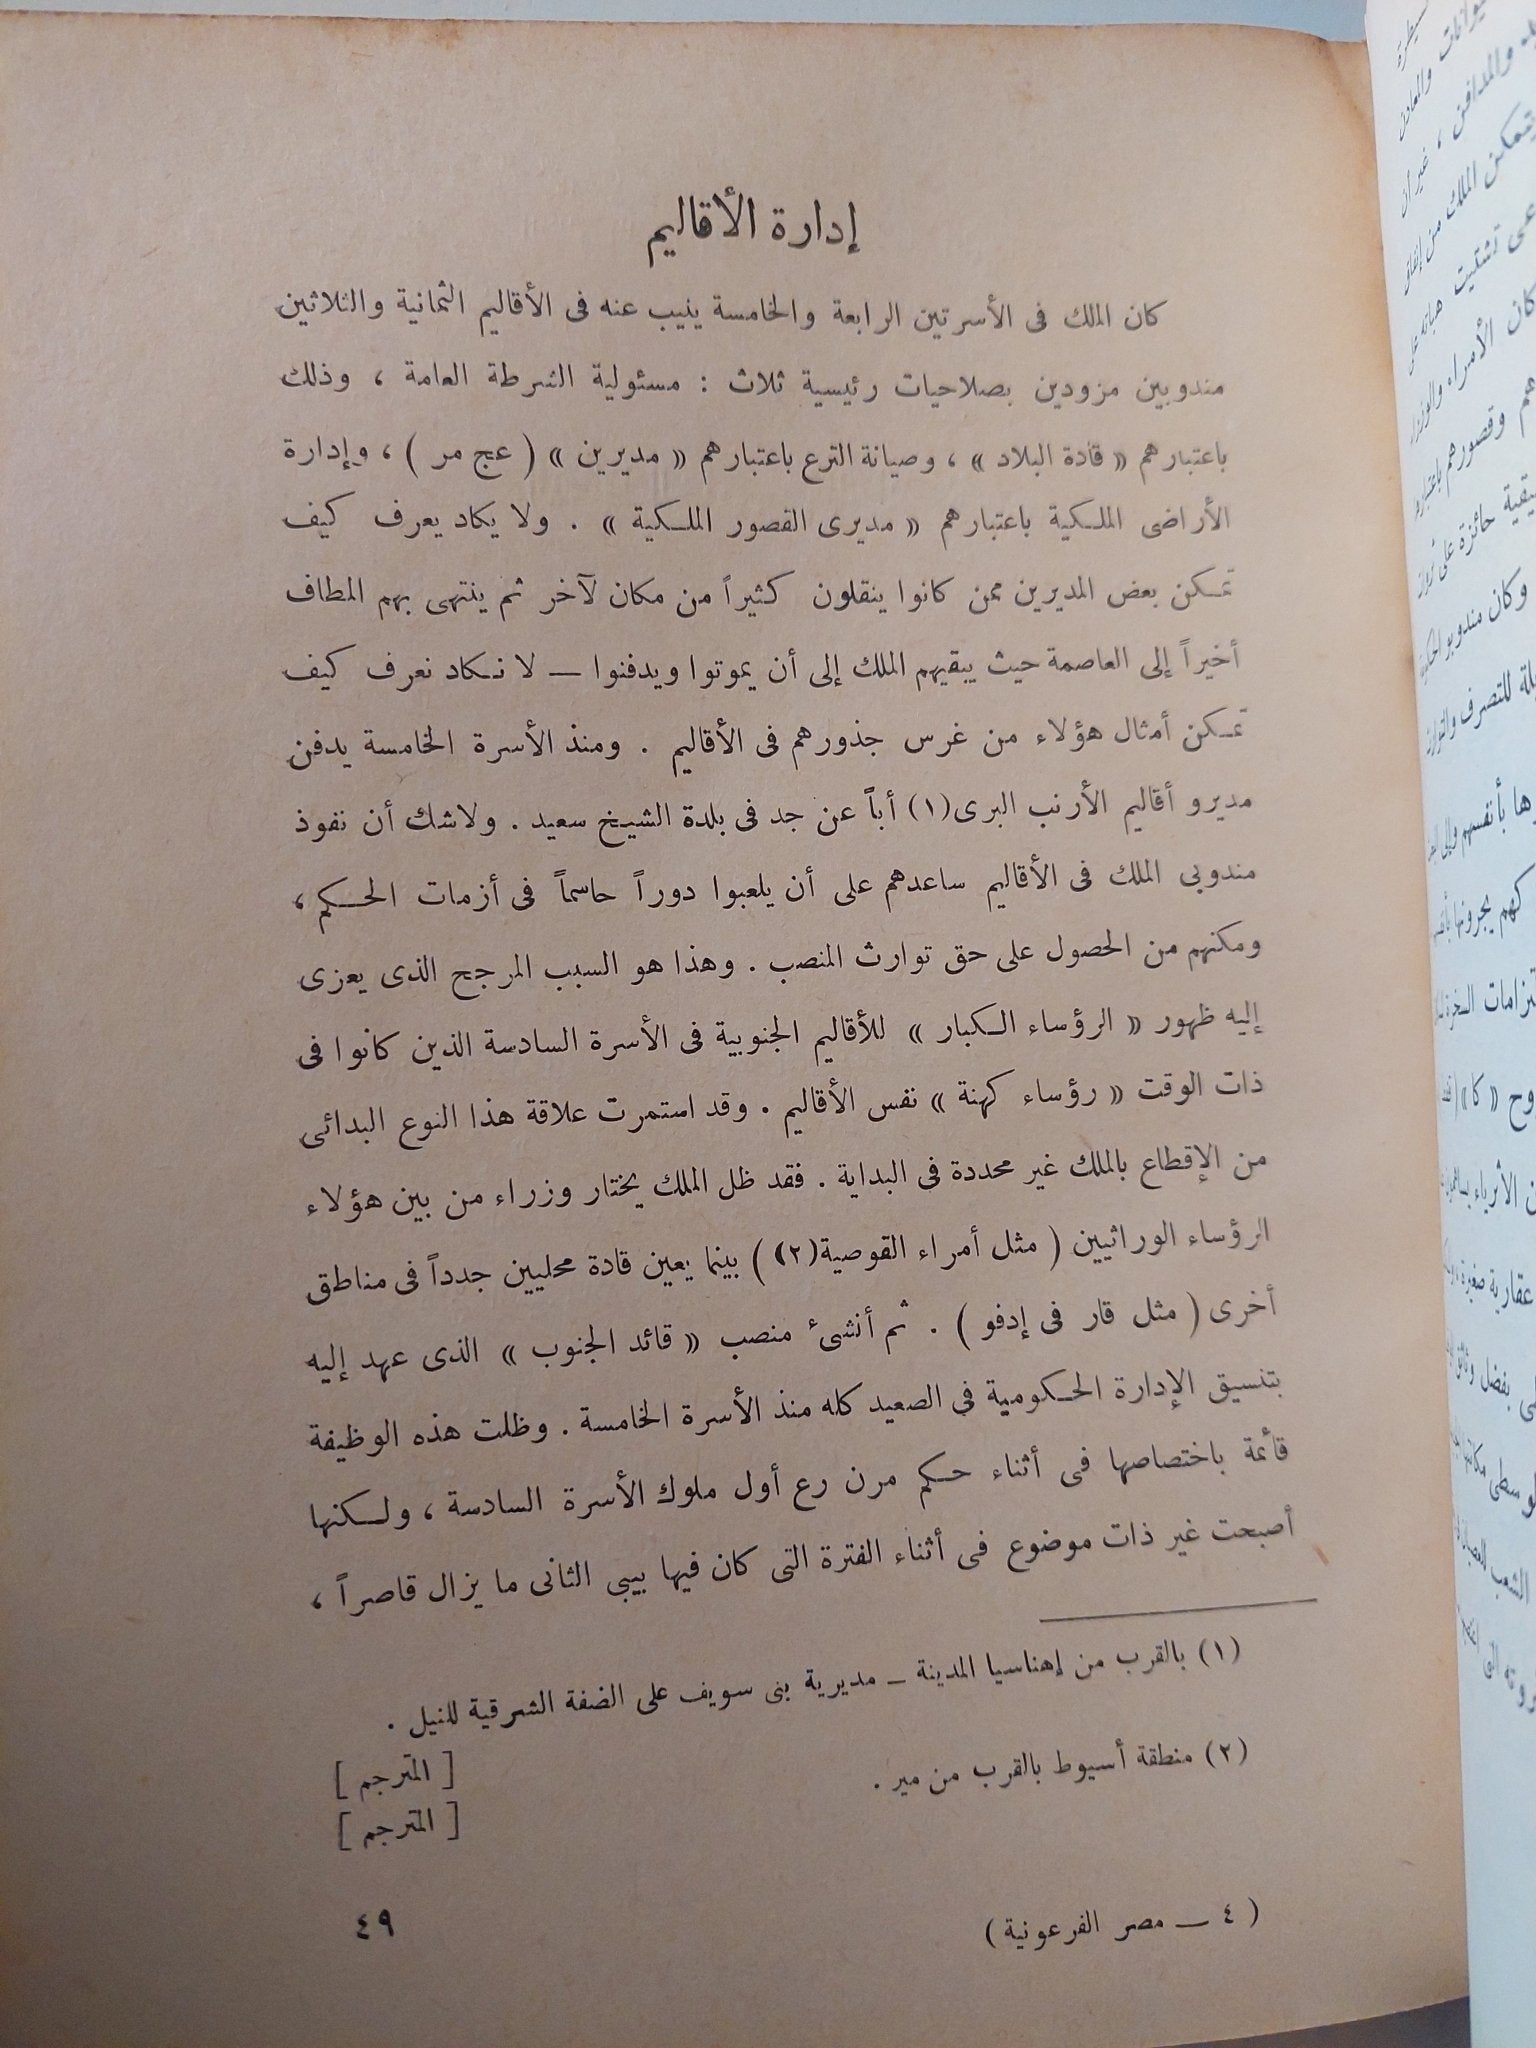 إدارة الأقاليم
كان الملك فى الأسرتين الرابعة والخامسة ينيب عنه فى الأقاليم الثمانية والثلاثين
مندوبين مزودين بصلاحيات رئيسية ثلاث : مسئولية الشرطة العامة ، وذلك
باعتبارهم « قادة البلاد » ، وصيانة الترع باعتبارهم « مديرين » ( عج مر ) ، وإدارة
الأراضى الملكية باعتبارهم « مديرى القصور الملكية » . ولا يكاد يعرف كيف
تمكن بعض المديرين ممن كانوا ينقلون كثيراً من مكان لآخر ثم ينتهى بهم المطاف
أخيراً إلى العاصمة حيث يبقيهم الملك إلى أن يموتوا ويدفنوا — لا نكاد نعرف كيف
تمكن أمثال هؤلاء من غرس جذورهم فى الأقاليم . ومنذ الأسرة الخامسة يدفن
مديرو أقاليم الأرنب البرى(١) أباً عن جد فى بلدة الشيخ سعيد . ولاشك أن نفوذ
مندوبى الملك فى الأقاليم ساعدهم على أن يلعبوا دوراً حاسماً فى أزمات الحكم ،
ومكنهم من الحصول على حق توارث المنصب . وهذا هو السبب المرجح الذى يعزى
إليه ظهور « الرؤساء الكبار » للأقاليم الجنوبية فى الأسرة السادسة الذين كانوا فى
ذات الوقت « رؤساء كهنة » نفس الأقاليم . وقد استمرت علاقة هذا النوع البدائى
من الإقطاع بالملك غير محددة فى البداية . فقد ظل الملك يختار وزراء من بين هؤلاء
الرؤساء الوراثيين ( مثل أمراء القوصية(٢) ) بينما يعين قادة محليين جدداً فى مناطق
أخرى ( مثل قار فى إدفو ) . ثم أنشىء منصب « قائد الجنوب » الذى عهد إليه
بتنسيق الإدارة الحكومية فى الصعيد كله منذ الأسرة الخامسة . وظلت هذه الوظيفة
قائمة باختصاصها فى أثناء حكم مرن رع أول ملوك الأسرة السادسة ، ولكنها
أصبحت غير ذات موضوع فى أثناء الفترة التى كان فيها بيبى الثانى ما يزال قاصراً ،
(١) بالقرب من إهناسيا المدينة – مديرية بنى سويف على الضفة الشرقية للنيل .
[ المترجم ]
(٢) منطقة أسيوط بالقرب من مير .
[ المترجم ]
( ٤ — مصر الفرعونية )
٤٩